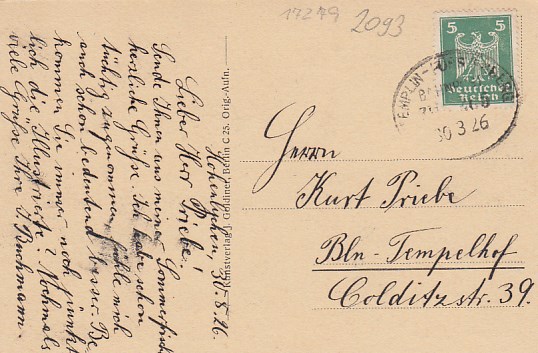 17279
2093
5 5
Deutsches
Reich
TEMPLIN-
BAHNPOST
ZUG
30 3 26
Herrn
Kurt Priebe
Bln-Tempelhof
Colditzstr. 39.
Kunstverlag J. Goldiner, Berlin C 25. Orig.-Aufn.
Hohenlychen, 30-8.26.
Lieber Herr Priebe!
Sende Ihnen aus meiner Sommerfrische
herzliche Grüße. Ich habe schon
tüchtig zugenommen, fühle mich
auch schon bedeutend besser. Be-
kommen Sie immer noch pünkt-
lich die Illustrierte? Nochmals
viele Grüße Ihre J. Buchmann.